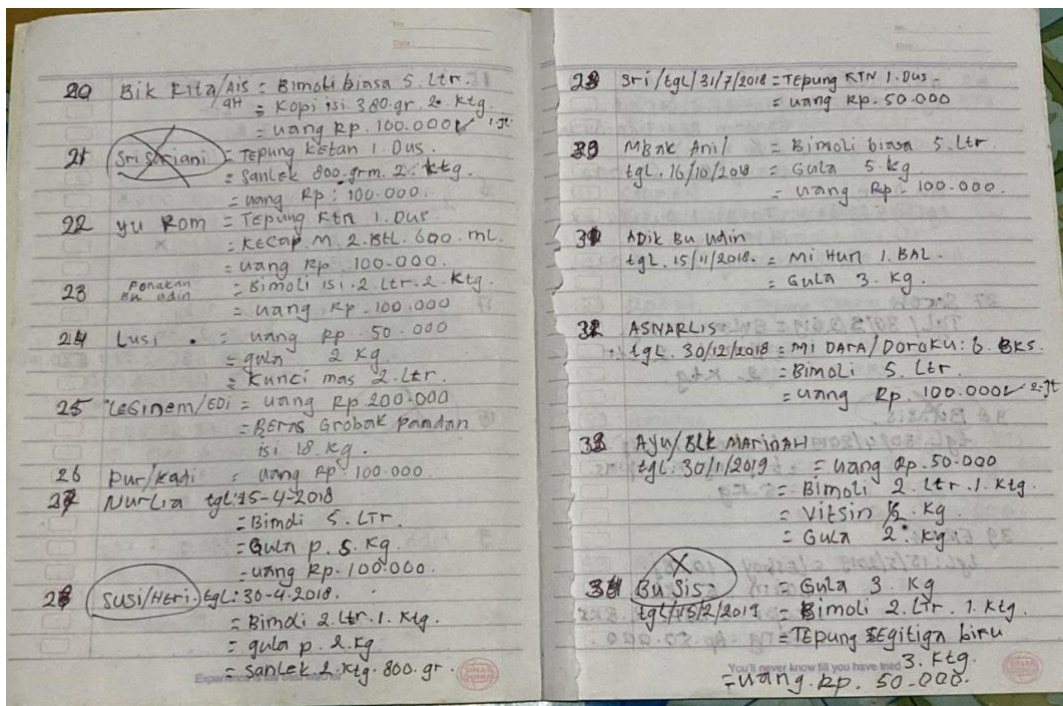 20 Bik Rita/Ais = Bimoli biasa 5. Ltr.
= Kopi isi 380.gr. 2. Ktg.
= uang Rp. 100.000 ✓ 1.Jt
21 Sri Suriani = Tepung Ketan 1. Dus.
= Sanlek 800.grm. 2. ktg.
= uang Rp. 100.000.
22 yu Rom = Tepung Ktn 1. Dus.
= KEcap M. 2. Btl. 600. mL.
= uang Rp. 100.000.
23 Ponakan Bu udin = Bimoli isi. 2. Ltr. 2. Ktg.
= uang Rp. 100.000
24 Lusi = uang Rp 50.000
= gula 2 Kg.
= Kunci mas 2. Ltr.
25 LEGinem/EDi = uang Rp 200.000
= BERAS Grobak Pandan
isi 18 Kg.
26 Pur/Kadi = uang Rp. 100.000
27 NurLia tgl:15-4-2018
= Bimoli 5. LTr.
= Gula p. 5. Kg.
= uang Rp. 100.000.
28 SUSi/HEri. tgL: 30-4-2018.
= Bimoli 2. Ltr. 1. Ktg.
= gula p. 2. Kg
= SanLek 2. Ktg. 800. gr.
SINAR DUNIA
Sri/tgl/31/7/2018 = TEpung KTN 1. Dus.
= uang Rp. 50.000
MBak Ani/ = Bimoli biasa 5. Ltr
tgl. 16/10/2018 = Gula 5. kg
= uang Rp. 100.000.
ADik Bu udin
tgl. 15/11/2018. = Mi Hun 1. BAL.
= Gula 3. Kg.
ASNARLIS
tgL. 30/12/2018 = Mi DARA/DoroKU: 6. BKS.
= Bimoli 5. Ltr.
= uang Rp. 100.000 ✓ 2.Jt
Ayu/BLK MARinAH
tgl: 30/1/2019 = uang Rp. 50.000
= Bimoli 2. Ltr. 1. Ktg.
= Vitsin ½. Kg.
= Gula 2. Kg
Bu Sis = Gula 3. Kg
tgl/15/2/2019 = Bimoli 2. Ltr. 1. Ktg.
= TEpung SEgitiga biru
You'll never know till you have tried 3. Ktg.
= uang. Rp. 50.000.